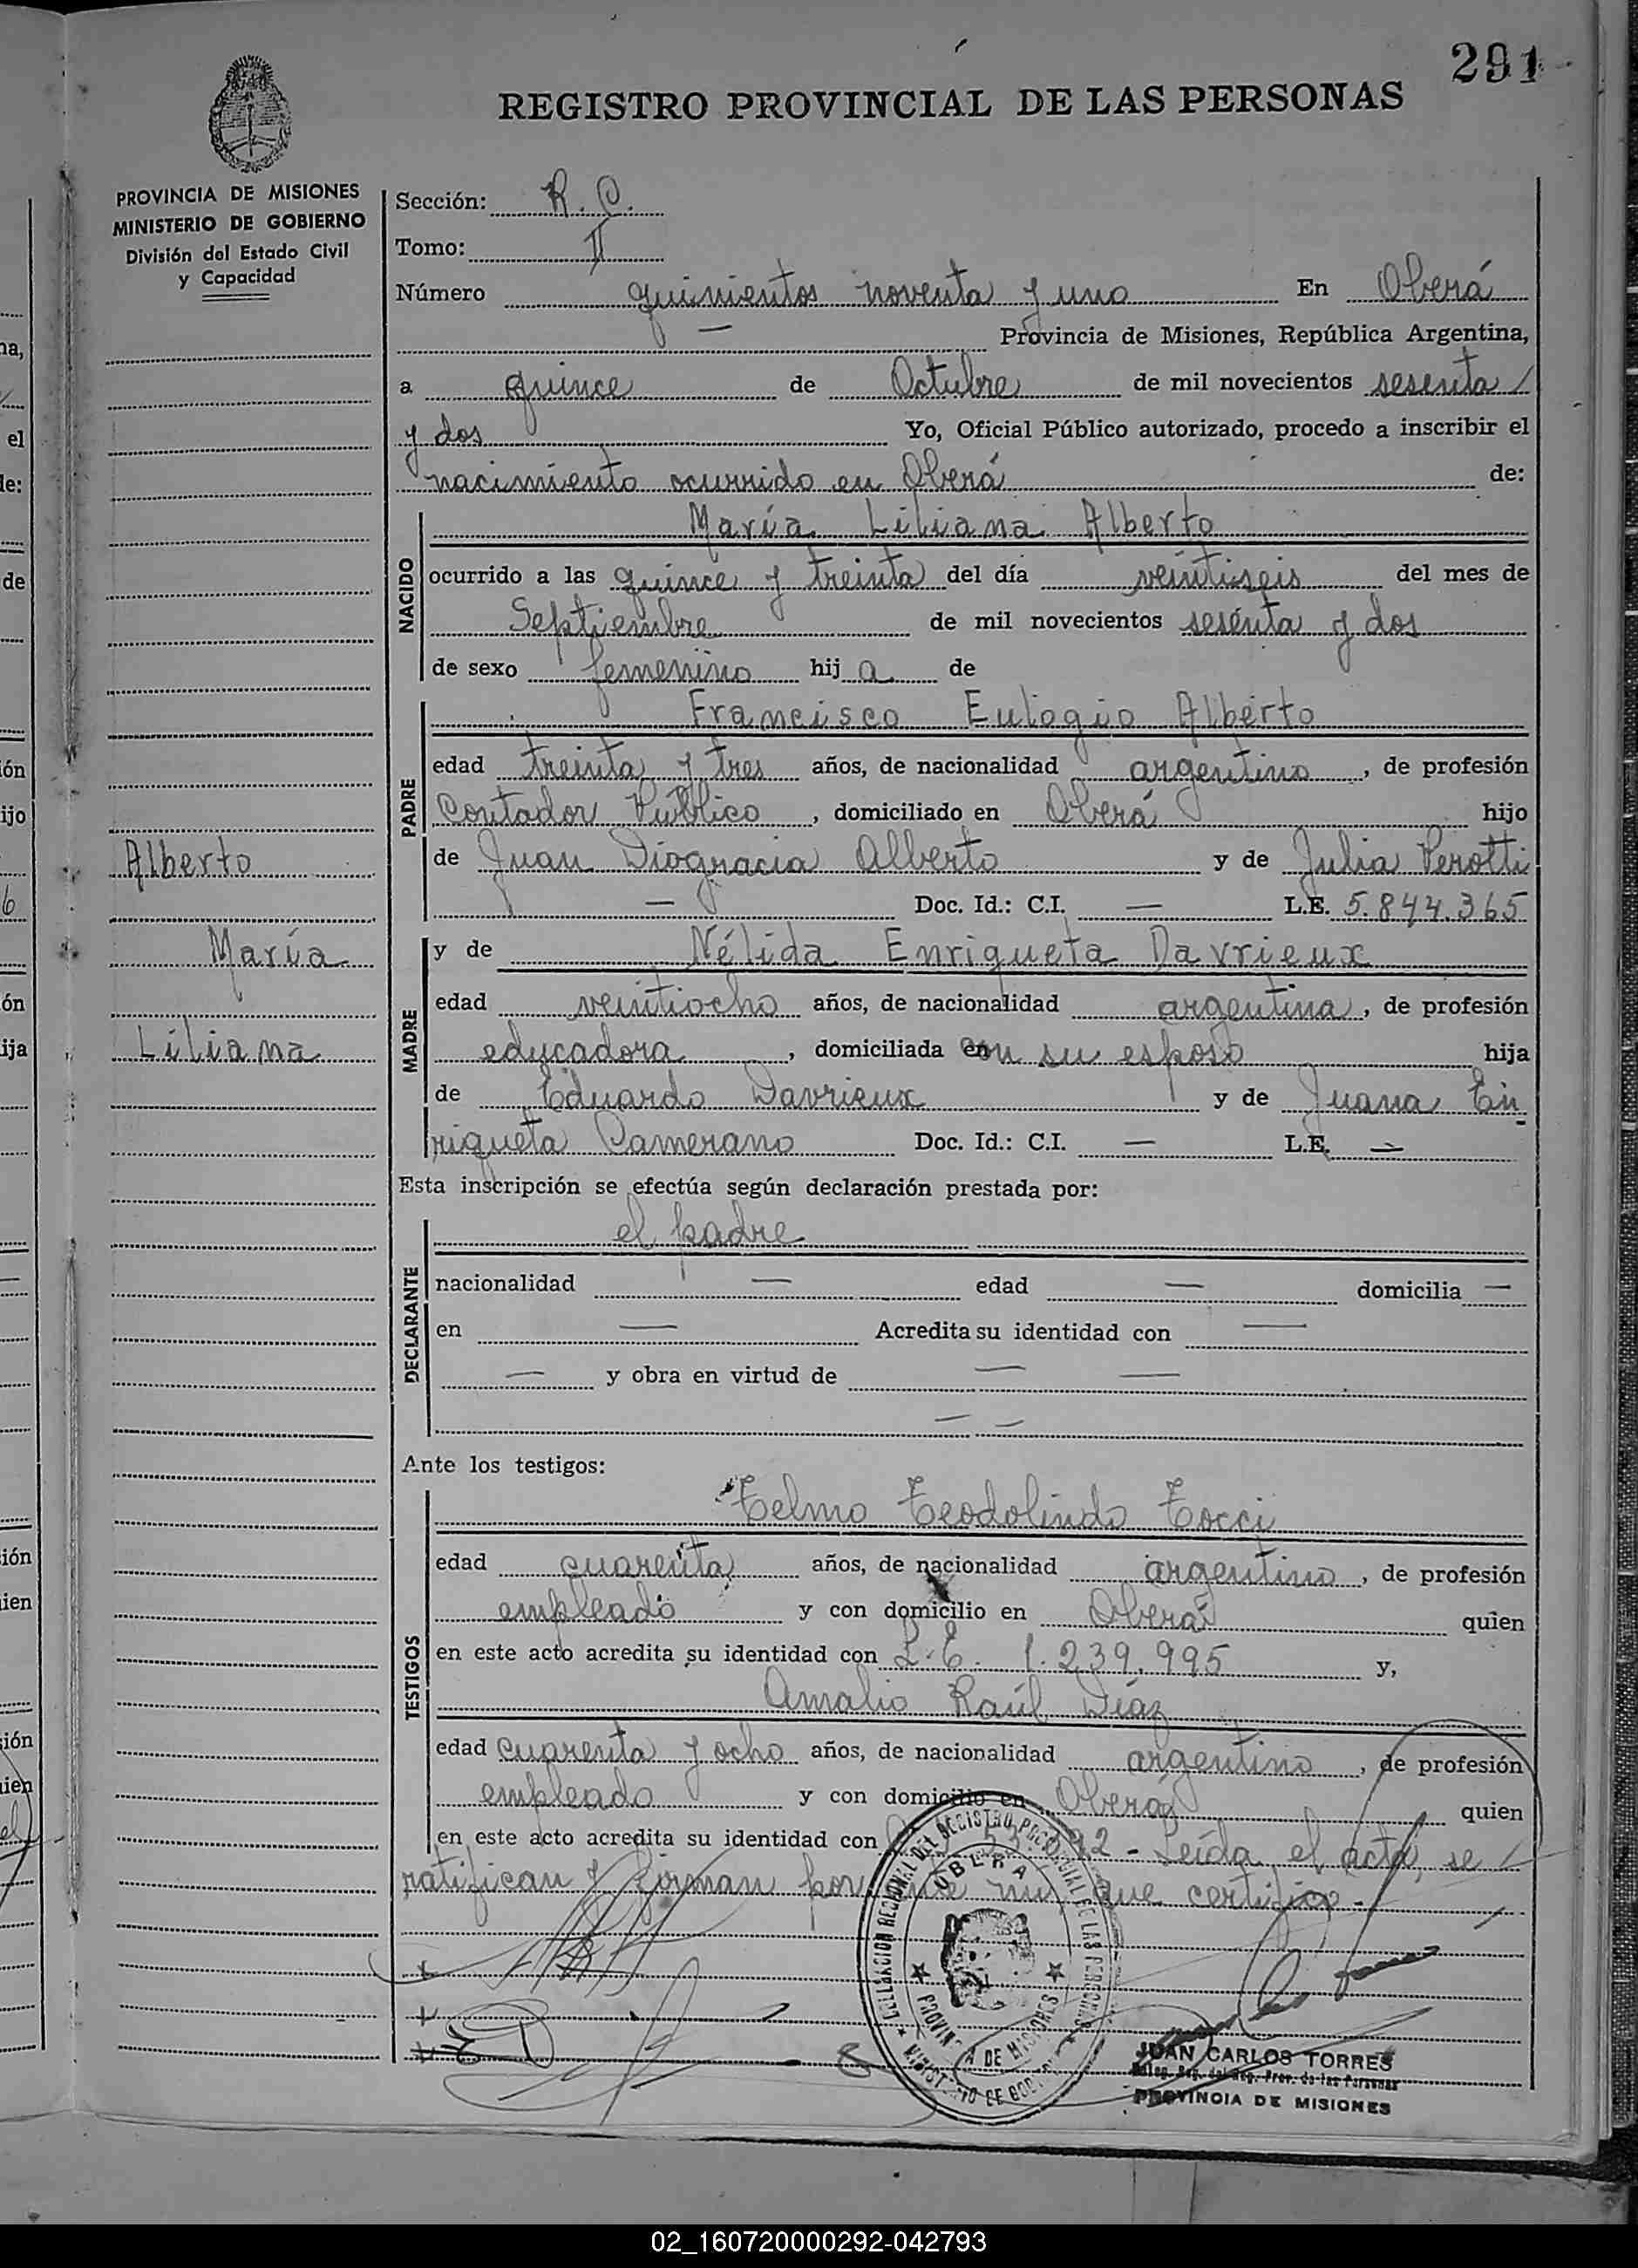 291
REGISTRO PROVINCIAL DE LAS PERSONAS
PROVINCIA DE MISIONES
MINISTERIO DE GOBIERNO
División del Estado Civil
y Capacidad
Sección: R. C.
Tomo: II
Número quinientos noventa y uno En Oberá
— Provincia de Misiones, República Argentina,
a quince de Octubre de mil novecientos sesenta /
y dos Yo, Oficial Público autorizado, procedo a inscribir el
nacimiento ocurrido en Oberá de:
NACIDO
María Liliana Alberto
ocurrido a las quince y treinta del día veintiseis del mes de
Septiembre de mil novecientos sesenta y dos
de sexo femenino hij a de
PADRE
Francisco Eulogio Alberto
edad treinta y tres años, de nacionalidad argentino, de profesión
Contador Público, domiciliado en Oberá hijo
de Juan Diogracia Alberto y de Julia Perotti
— Doc. Id.: C.I. — L.E. 5.844.365
Alberto
María
Liliana
MADRE
y de Nélida Enriqueta Davrieux
edad veintiocho años, de nacionalidad argentina, de profesión
educadora, domiciliada con su esposo hija
de Eduardo Davrieux y de Juana En
riqueta Camerano Doc. Id.: C.I. — L.E. —
Esta inscripción se efectúa según declaración prestada por:
DECLARANTE
el padre
nacionalidad — edad — domicilia —
en — Acredita su identidad con —
— y obra en virtud de — —
— —
Ante los testigos:
TESTIGOS
Telmo Teodolindo Tocci
edad cuarenta años, de nacionalidad argentino, de profesión
empleado y con domicilio en Oberá quien
en este acto acredita su identidad con L.E. 1.239.995 y,
Amalio Raúl Díaz
edad cuarenta y ocho años, de nacionalidad argentino, de profesión
empleado y con domicilio en Oberá quien
en este acto acredita su identidad con - Leída el acta, se /
ratifican y firman por ante mí que certifico.-
DELEGACION REGIONAL DEL REGISTRO PROVINCIAL DE LAS PERSONAS
OBERA
PROVINCIA DE MISIONES
MINISTERIO DE GOBIERNO
JUAN CARLOS TORRES
Deleg. Reg. del Reg. Prov. de las Personas
PROVINCIA DE MISIONES
02_160720000292-042793